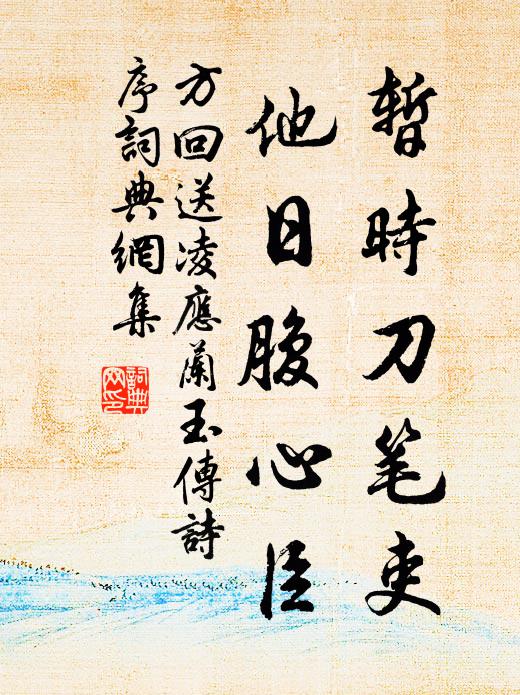 暫時刀笔吏
他日腹心臣
方回送凌應蘭玉傳詩
序詞典網集
詞典网印